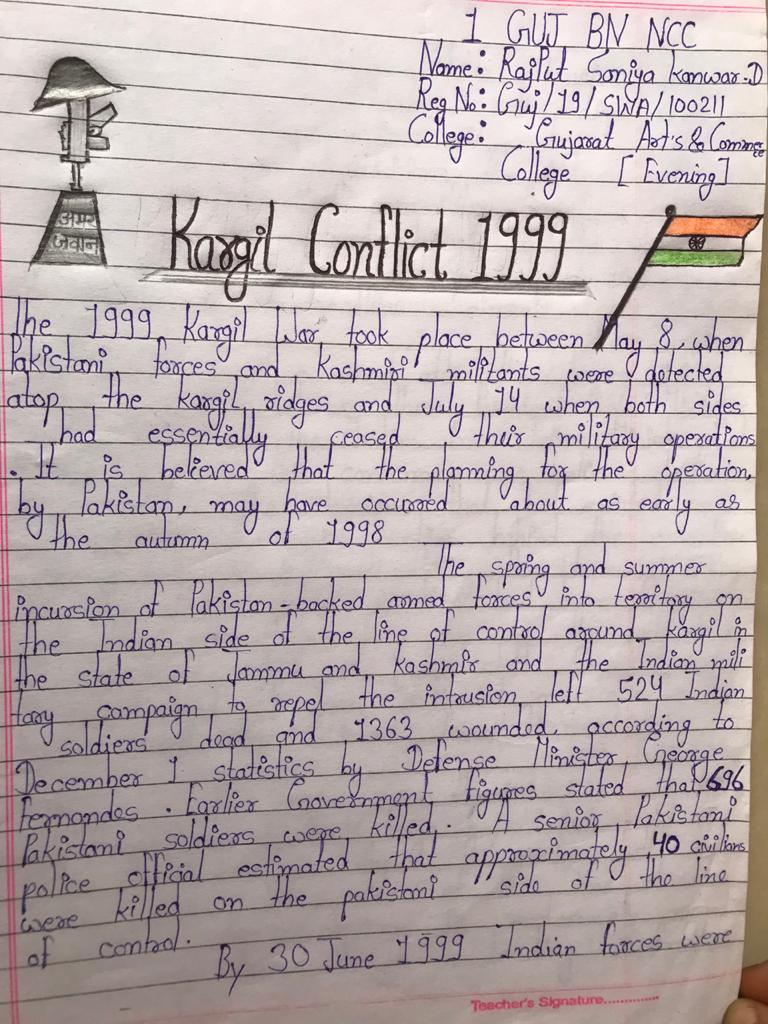 1 GUJ BN NCC
Name: RajPut Soniya kanwar.D
Reg No: Guj/19/SWA/100211
College: Gujarat Art's & Commerce
College [Evening]
अमर
जवान
Kargil Conflict 1999
The 1999 Kargil War took place between May 8, when
Pakistani forces and Kashmiri militants were detected
atop the kargil ridges and July 14 when both sides
had essentially ceased their military operations
. It is believed that the planning for the operation,
by Pakistan, may have occurred about as early as
the autumn of 1998
The spring and summer
incursion of Pakistan-backed armed forces into territory on
the Indian side of the line of control around kargil in
the state of Jammu and kashmir and the Indian mili
tary campaign to repel the intrusion left 524 Indian
soldiers dead and 1363 wounded, according to
December 1 statistics by Defense Minister George
Fernandes. Earlier Government figures stated that 696
Pakistani soldiers were killed. A senior Pakistani
police official estimated that approximately 40 civilians
were killed on the pakistani side of the line
of control.
By 30 June 1999 Indian forces were
Teacher's Signature..............